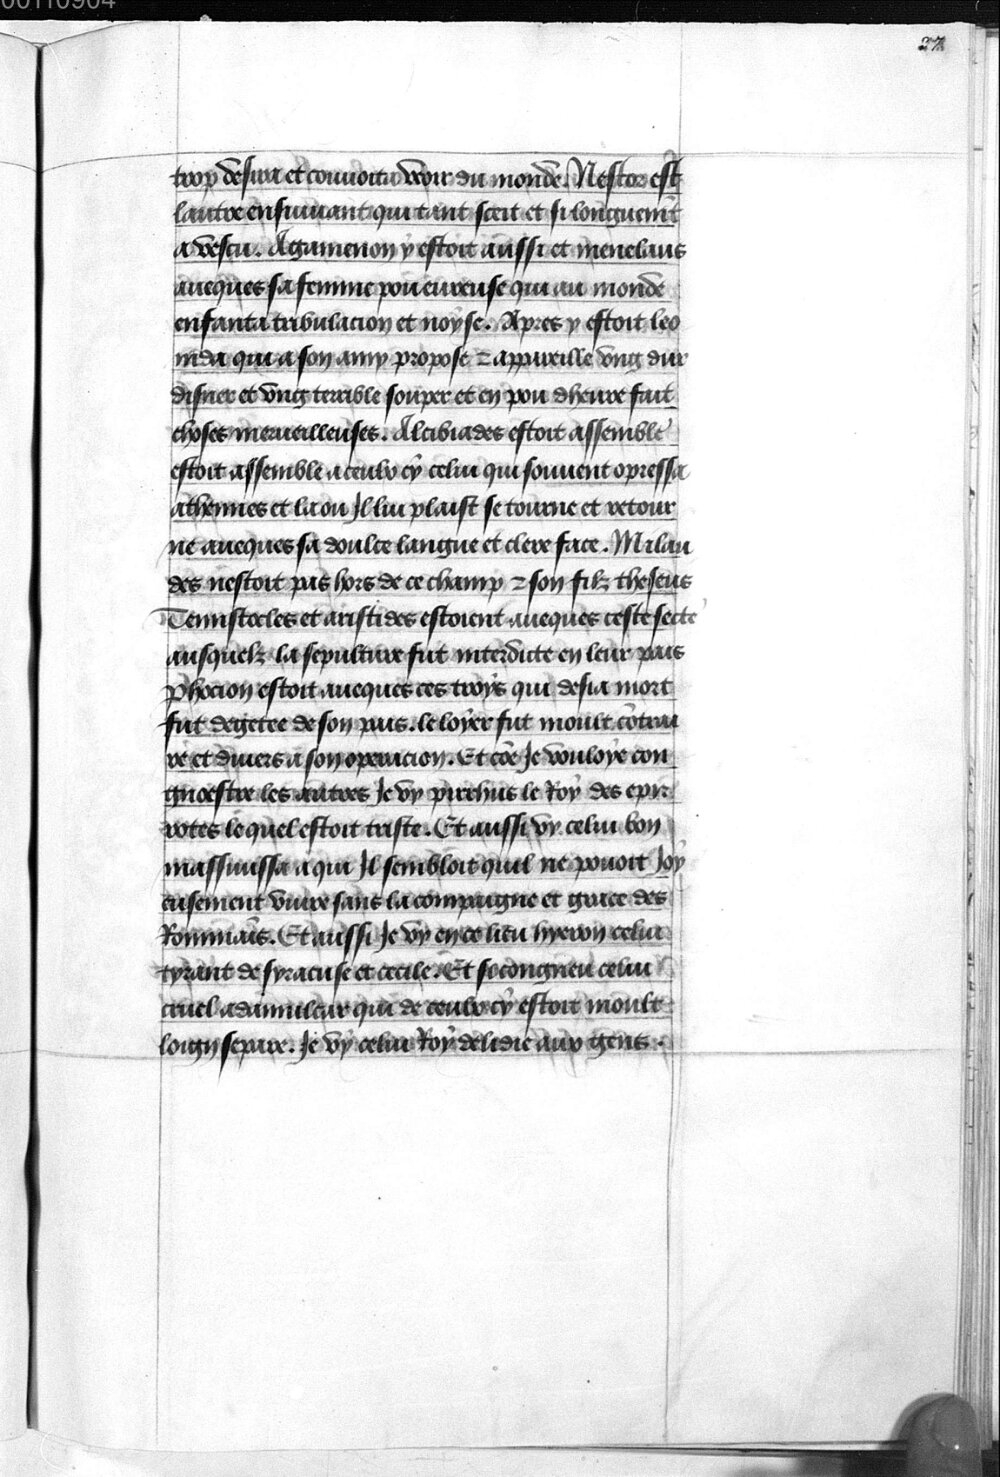 00110904
27
trop desira et couuoita veoir du monde. Nestor est
lautre ensuiuant qui tant sceut et si longuemt
a vescu. Agamenon y estoit aussi et menelaus
aueques sa femme poueureuse qui au monde
enfanta tribulacion et noyse. Apres y estoit leo
nida qui a son amy propose ⁊ appareille vng dur
disner et vng terrible souper et en pou dheure fait
choses merueilleuses. Alcibiades estoit assemble
estoit assemble a ceulx cy celui qui souuent opressa
athennes et la ou Il lui plaist se tourne et retour
ne aueques sa doulce langue et clere face. Milciau
des nestoit pas hors de ce champ ⁊ son filz theseus
Temistocles et aristides estoient aueques ceste secte
ausquelz la sepulture fut interdicte en leur pais
Phocion estoit aueques ces troys qui desia mort
fut degetee de son pais. le loyer fut moult cōtrai
re et diuers a son operacion. Et cōe Je vouloye con
gnoestre les autres Je vy pirrhus le Roy des epir
rotes lequel estoit triste. Et aussi vy celui bon
massinissa a qui Il sembloit quil ne pouoit Joy
eusement viure sans la compaignie et grace des
Rommains. Et aussi Je vy en ce lieu hyeron celui
tyrant de syracuse et cecile. Et se congneu celui
cruel adamulcar qui de ceulx cy estoit moult
loing separe. Je vy celui Roy de lidie aux gens .